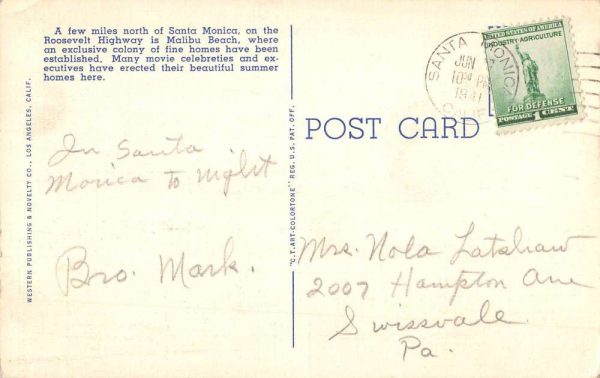 A few miles north of Santa Monica, on the
Roosevelt Highway is Malibu Beach, where
an exclusive colony of fine homes have been
established. Many movie celebreties and ex-
ecutives have erected their beautiful summer
homes here.
WESTERN PUBLISHING & NOVELTY CO., LOS ANGELES, CALIF.
In Santa
Monica to night
Bro. Mark.
"C.T. ART-COLORTONE" REG. U.S. PAT. OFF.
POST CARD
SANTA MONICA
JUN
PM
CALIF
UNITED STATES OF AMERICA
INDUSTRY-AGRICULTURE
FOR DEFENSE
POSTAGE 1 CENT
Mrs. Nola Latshaw
2007 Hampton Ave
Swissvale
Pa.